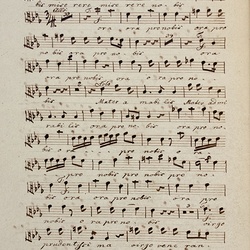 bis mise rere mise rere no bis
ora pro nobis ora pro
no bis ora pro no bis ora
ora pro nobis ora o ra pro no
bis Mater a ma bi lis Mater
ra bi lis ora pro no bis ora
pro nobis pro nobis pro no
bis ora pro nobis ora pro
nobis o ra pro no bis
prudentissi ma virgo vene ran